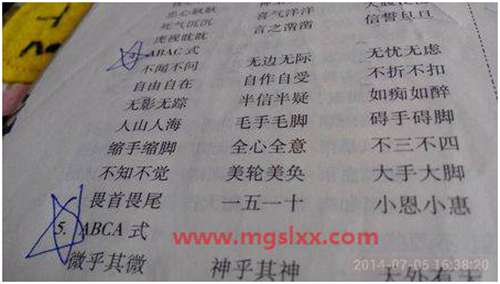 死气沉沉 喜气洋洋
虎视眈眈 言之凿凿 信誓旦旦
ABAC 式
不闻不问 无边无际 无忧无虑
自由自在 自作自受 不折不扣
无影无踪 半信半疑 如痴如醉
人山人海 毛手毛脚 碍手碍脚
缩手缩脚 全心全意 不三不四
不知不觉 美轮美奂 大手大脚
畏首畏尾 一五一十 小恩小惠
5. ABCA 式
www.mgslxx.com
微乎其微 神乎其神 天外有天
2014-07-05 16:38:20